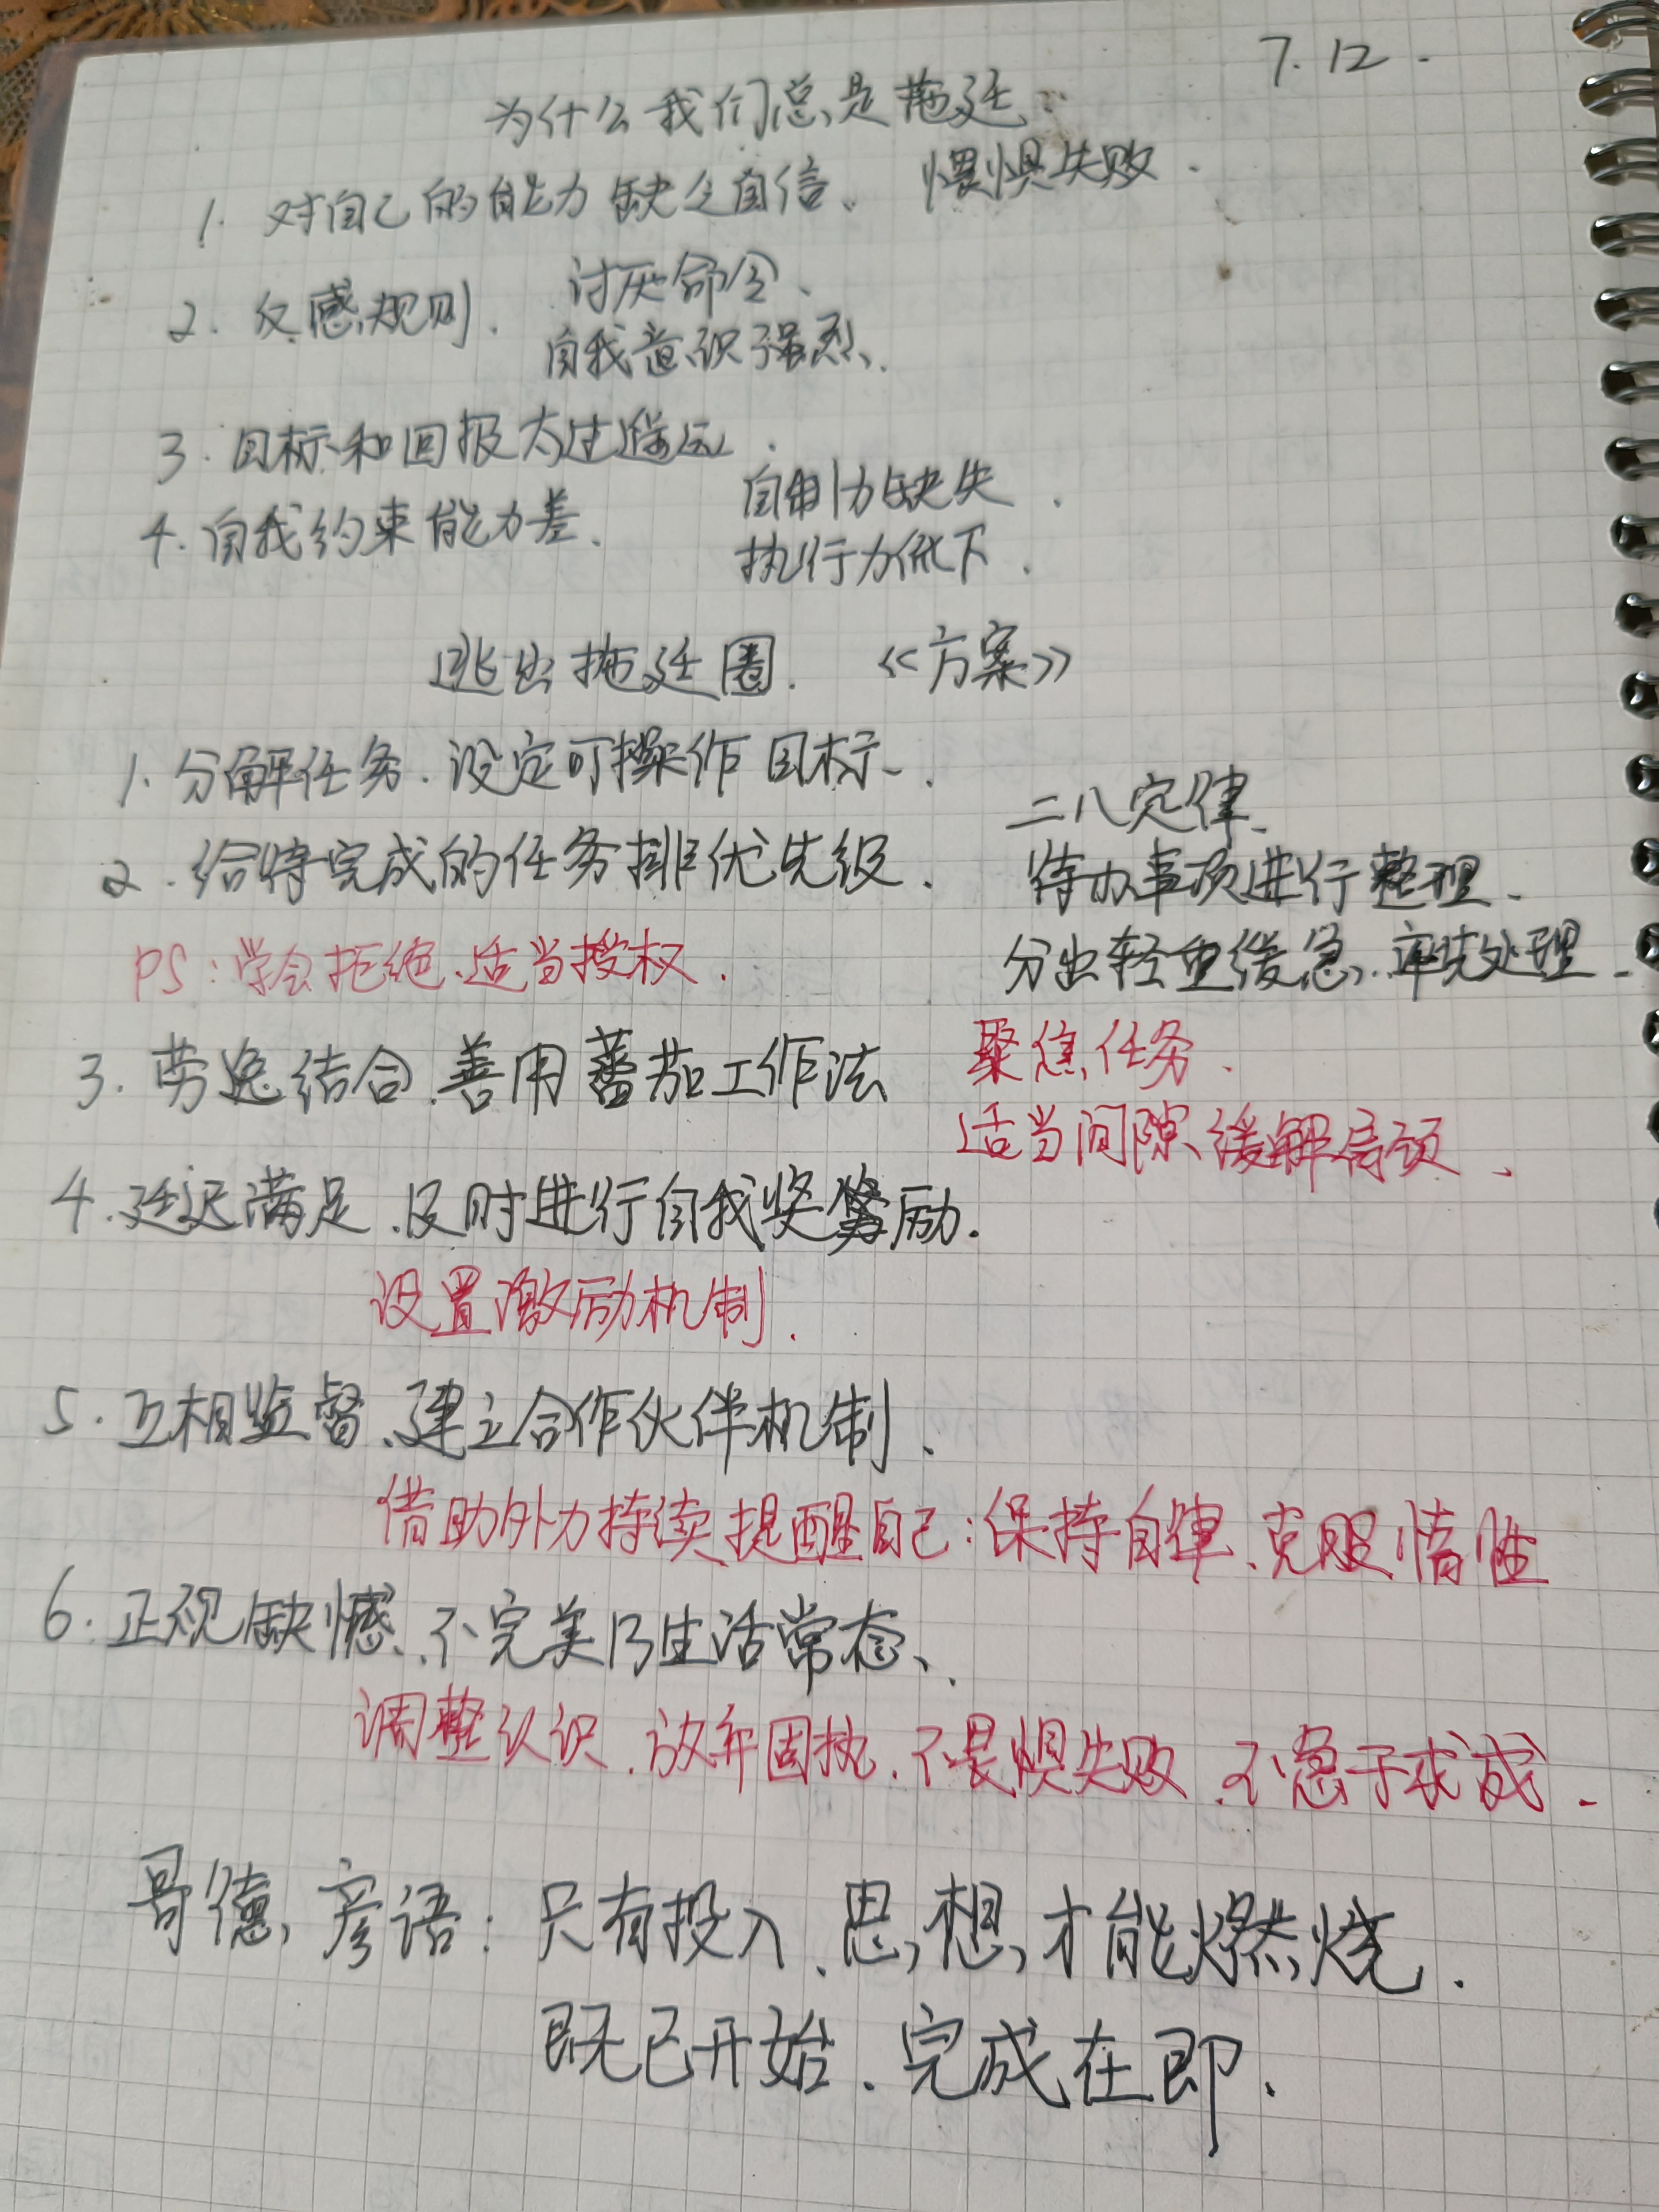 7.12.
为什么我们总是拖延.
1. 对自己的能力缺乏自信、 惧惧失败.
2. 反感规则. 讨厌命令、
自我意识强烈、
3. 目标和回报太过遥远.
4. 自我约束能力差. 自制力缺失.
执行力低下.
逃出拖延圈. 《方案》
1. 分解任务. 设定可操作目标.
2. 给待完成的任务排优先级. 二八定律、
待办事项进行整理、
分出轻重缓急, 率先处理、
PS: 学会拒绝、适当授权.
3. 劳逸结合、善用蕃茄工作法 聚焦任务.
适当间隙、缓解
4. 延迟满足、及时进行自我奖励.
设置激励机制.
5. 互相监督、建立合作伙伴机制、
借助外力持续提醒自己: 保持自律、克服惰性
6. 正视缺憾、不完美乃生活常态、
调整认识、放弃固执、不畏惧失败、不急于求成.
哥德、彦语: 只有投入、思想,才能燃烧.
既已开始、完成在即.